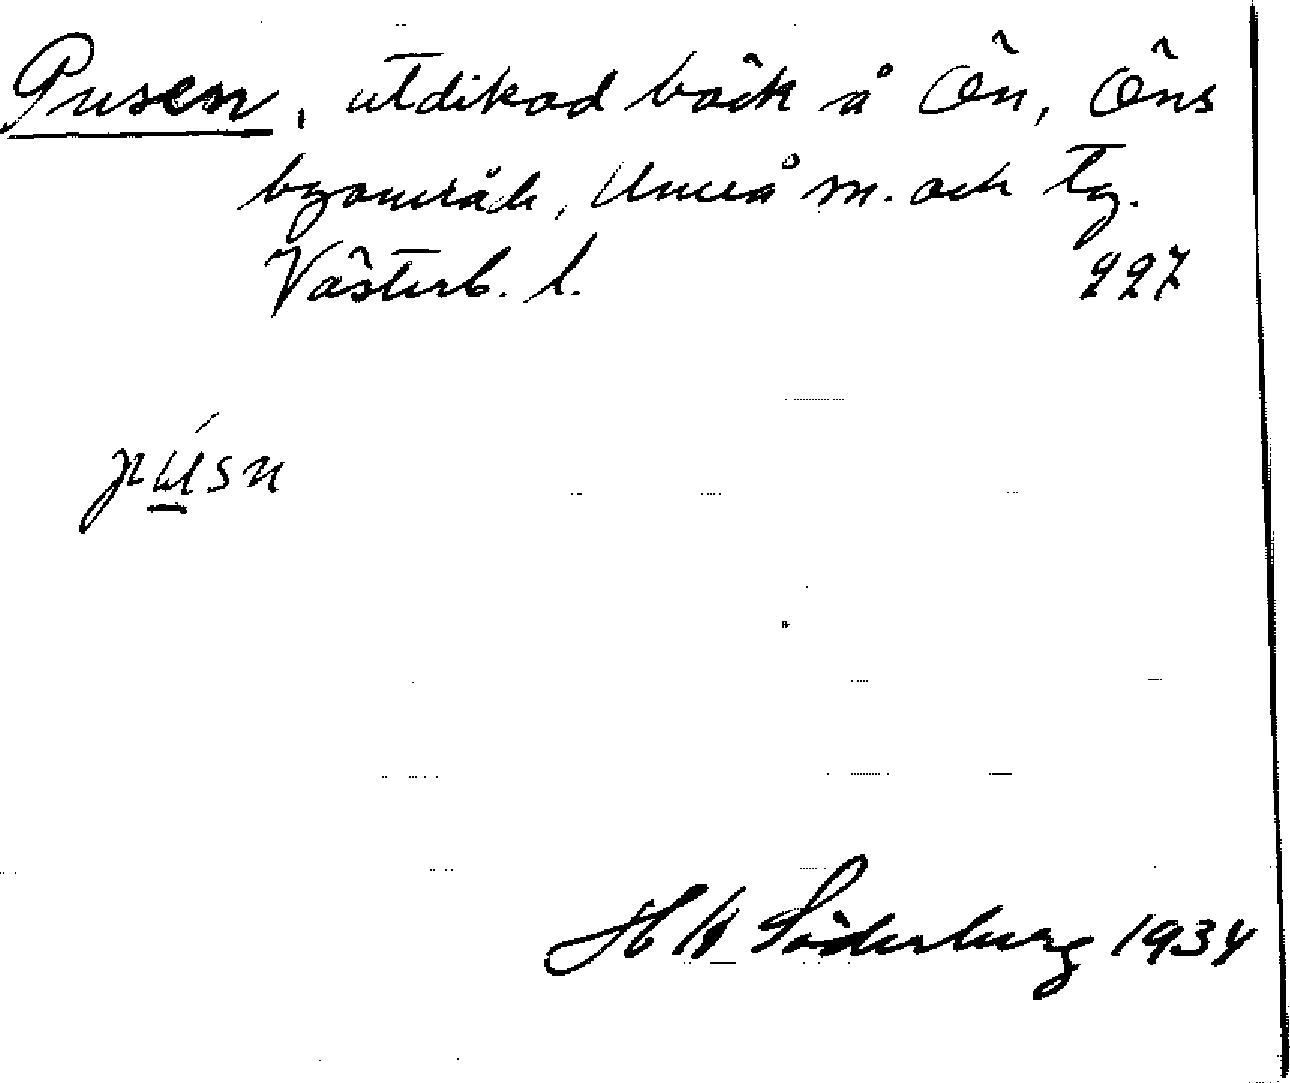 Pusen, utdikad bäck å Ön, Öns
byområde, Umeå m. och tg.
Västerb. l. 227
púsn
Söderberg 1934